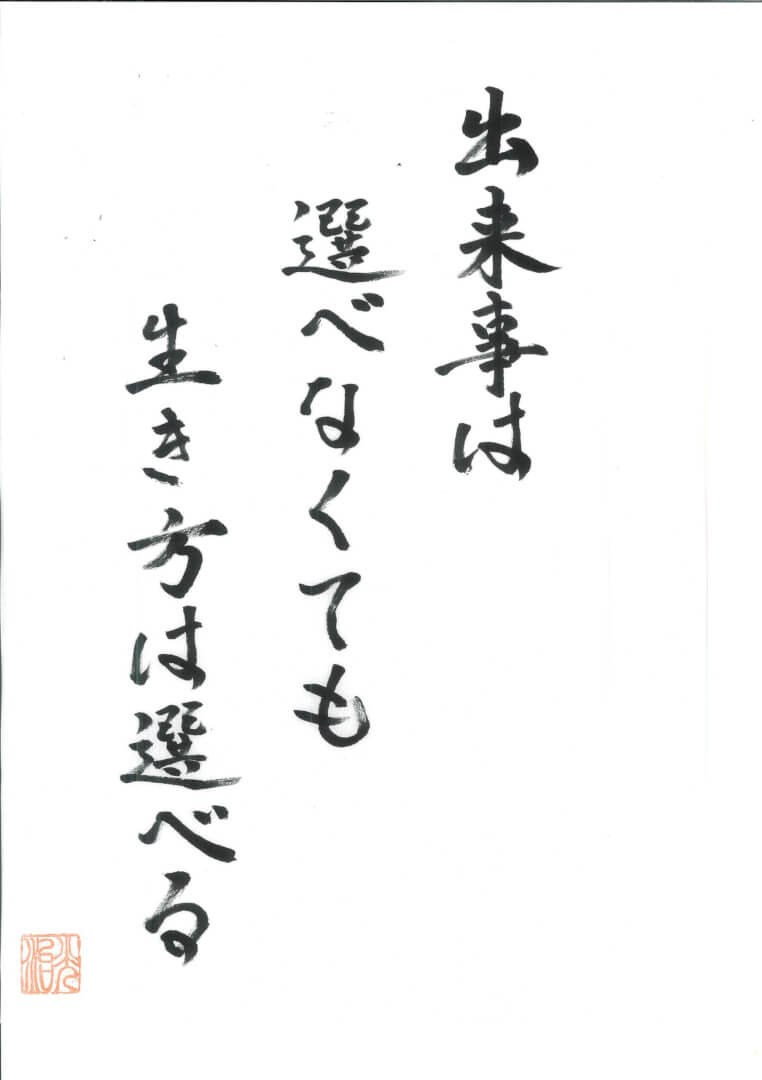 出来事は
選べなくても
生き方は選べる